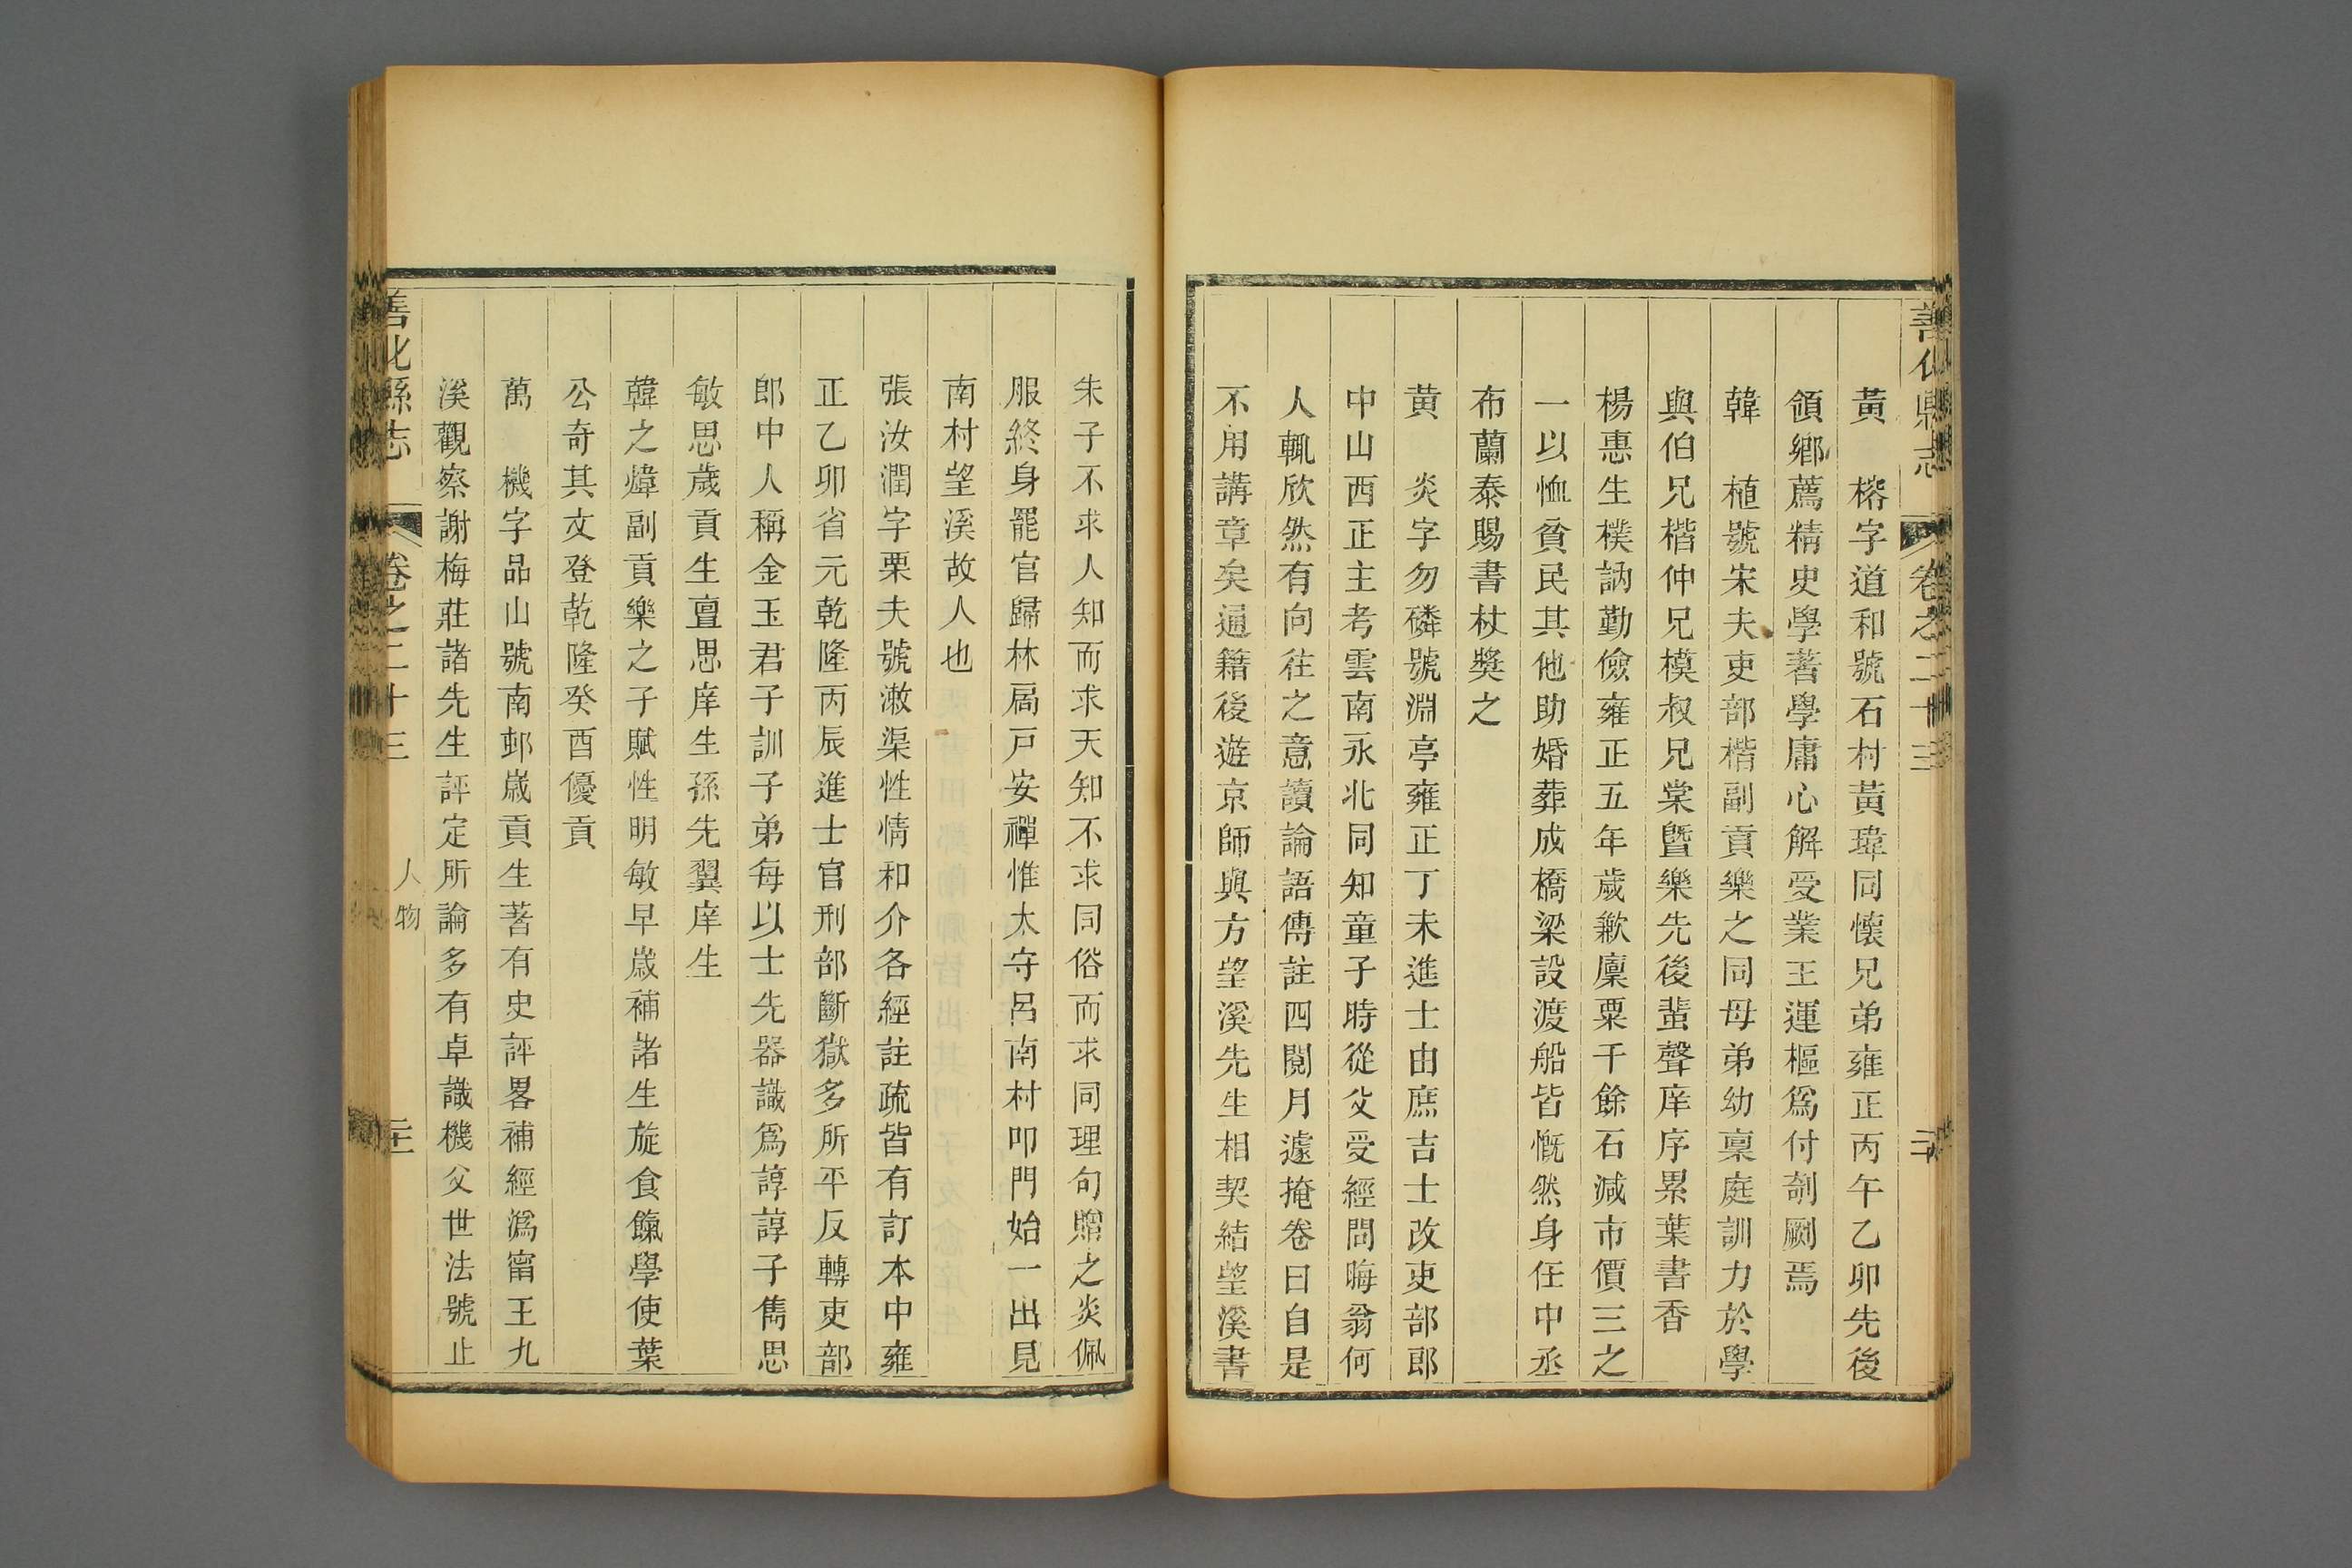 善化縣志 卷之二十三
黃　榕字道和號石村黃瑋同懷兄弟雍正丙午乙卯先後
領鄉薦精史學著學庸心解受業王運樞爲付剞劂焉
韓　植號宋夫吏部楷副貢樂之同母弟幼稟庭訓力於學
與伯兄楷仲兄模叔兄棠曁樂先後蜚聲庠序累葉書香
楊惠生樸訥勤儉雍正五年歲歉廩粟千餘石減市價三之
一以恤貧民其他助婚葬成橋梁設渡船皆慨然身任中丞
布蘭泰賜書杖獎之
黄　炎字勿磷號淵亭雍正丁未進士由庶吉士改吏部郎
中山西正主考雲南永北同知童子時從父受經問晦翁何
人輒欣然有向往之意讀論語傳註四閱月遽掩卷曰自是
不用講章矣通籍後遊京師與方望溪先生相契結望溪書
朱子不求人知而求天知不求同俗而求同理句贈之炎佩
服終身罷官歸林扃戸安禪惟太守呂南村叩門始一出見
南村望溪故人也
張汝潤字栗夫號漵渠性情和介各經註疏皆有訂本中雍
正乙卯省元乾隆丙辰進士官刑部斷獄多所平反轉吏部
郎中人稱金玉君子訓子弟每以士先器識爲諄諄子雋思
敏思歲貢生亶思庠生孫先翼庠生
韓之煒副貢樂之子賦性明敏早歲補諸生旋食餼學使葉
公奇其文登乾隆癸酉優貢
萬　機字品山號南邨歲貢生著有史評畧補經溈甯王九
溪觀察謝梅莊諸先生評定所論多有卓識機父世法號止
善化縣志 卷之二十三 人物